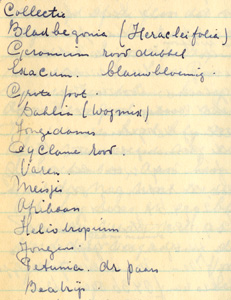 Collectie
Bladbegonia (Heracleifolia)
Geranium rood dubbel
Exacum. blauwbloemig.
Grote pot.
Dahlia (Wogmix)
Jongedames
Cyclame rood.
Varen
Meisjes
Afrikaan
Heliotropium
Jongens.
Petunia. dr paars
Beatrijs.